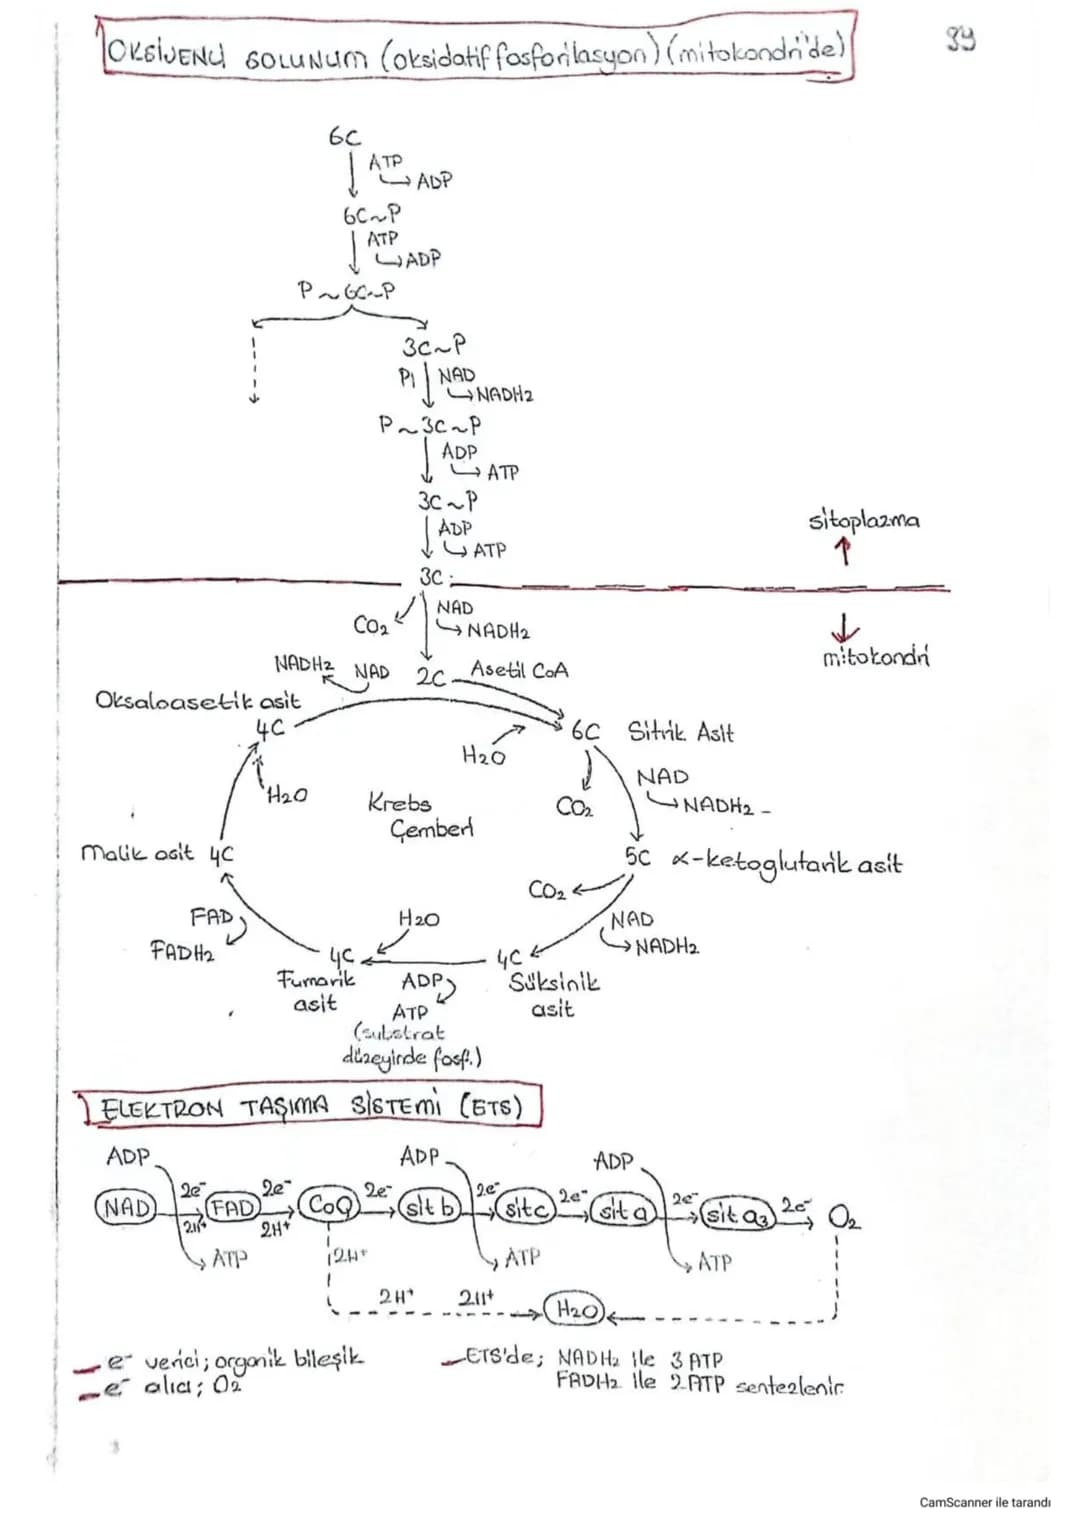 OKSİJENLİ SOLUNUM (oksidatif fosforilasyon) (mitokondri'de)
39
6C
ATP
ADP
6C~P
ATP
ADP
P~6C~P
3C~P
Pi NAD
NADH2
P~3C~P
ADP
ATP
3C~P
sitoplazma
ADP
ATP
3C
CO2 NAD
NADH2
mitokondri
NADH2 NAD 2C Asetil CoA
Oksaloasetik asit
4C 6C Sitrik Asit
H2O
NAD
H2O Krebs CO2 NADH2
Çemberi
Malik asit 4C 5C α-ketoglutarik asit
CO2
FAD H2O NAD
FADH2 NADH2
4C 4C
Fumarik ADP Süksinik
asit ATP asit
(substrat
düzeyinde fosf.)
ELEKTRON TAŞIMA SİSTEMİ (ETS)
ADP ADP ADP
NAD 2e- FAD 2e- CoQ 2e- sit b 2e- sit c 2e- sit a 2e- sit a3 2e- O2
2H+ 2H+
ATP 2H+ ATP ATP
2H+ 2H+ H2O
e- verici; organik bileşik
e- alıcı; O2
ETS'de; NADH2 ile 3 ATP
FADH2 ile 2 ATP sentezlenir.
CamScanner ile tarandı